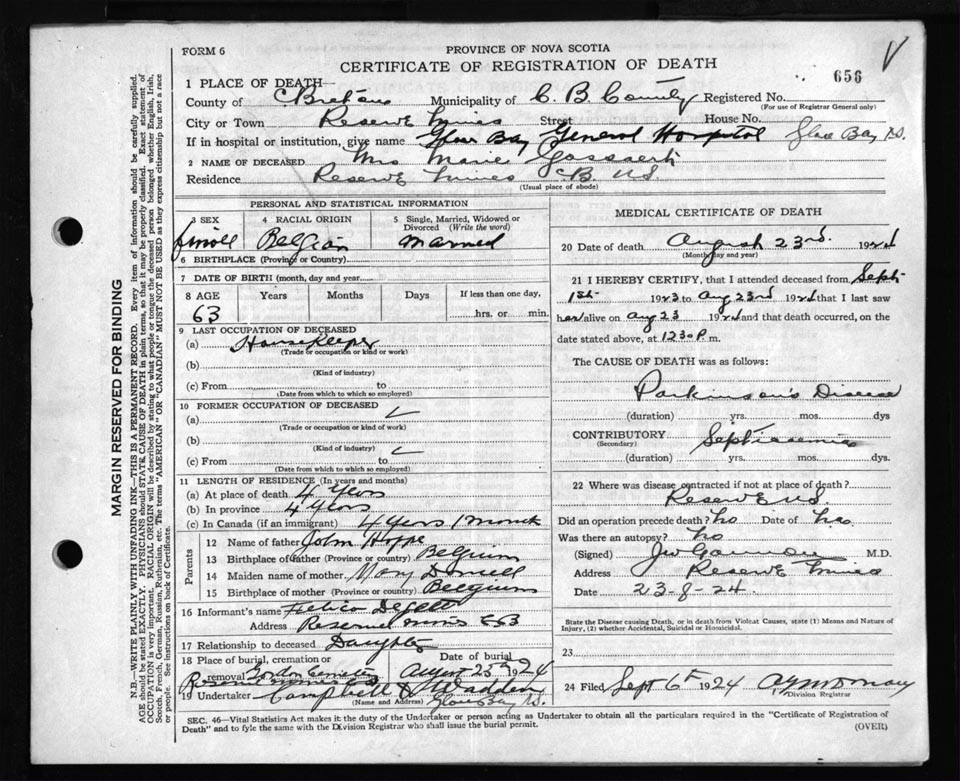 FORM 6
PROVINCE OF NOVA SCOTIA
CERTIFICATE OF REGISTRATION OF DEATH
656
V
1 PLACE OF DEATH—
County of C Breton Municipality of C. B. County Registered No.
(For use of Registrar General only)
City or Town Reserve Mines Street House No.
If in hospital or institution, give name Glace Bay General Hospital Glace Bay N.S.
2 NAME OF DECEASED Mrs Marie
Residence Reserve Mines C.B. N.S.
(Usual place of abode)
PERSONAL AND STATISTICAL INFORMATION
3 SEX 4 RACIAL ORIGIN 5 Single, Married, Widowed or Divorced (Write the word)
Belgian Married
6 BIRTHPLACE (Province or Country)
7 DATE OF BIRTH (month, day and year)
8 AGE Years Months Days If less than one day,
63 hrs. or min.
9 LAST OCCUPATION OF DECEASED
(a) HouseKeeper
(Trade or occupation or kind or work)
(b)
(Kind of industry)
(c) From to
(Date from which to which so employed)
10 FORMER OCCUPATION OF DECEASED
(a)
(Trade or occupation or kind of work)
(b)
(Kind of industry)
(c) From to
(Date from which to which so employed)
11 LENGTH OF RESIDENCE (In years and months)
(a) At place of death 4 Years
(b) In province 4 Years
(c) In Canada (if an immigrant) 4 Years 1 Month
Parents
12 Name of father John Hoppe
13 Birthplace of father (Province or country) Belgium
14 Maiden name of mother Mary
15 Birthplace of mother (Province or country) Belgium
16 Informant's name
Address Reserve Mines
17 Relationship to deceased Daughter
18 Place of burial, cremation or removal Date of burial
August 25th 1924
19 Undertaker Campbell &
(Name and Address) Glace Bay N.S.
MEDICAL CERTIFICATE OF DEATH
20 Date of death August 23rd. 1924
(Month, day and year)
21 I HEREBY CERTIFY, that I attended deceased from Sept.
1st 1923 to Aug 23rd 1924 that I last saw
her alive on Aug 23 1924 and that death occurred, on the
date stated above, at 12 30 P. m.
The CAUSE OF DEATH was as follows:
Parkinson's Disease
(duration) yrs. mos. dys
CONTRIBUTORY Septicaemia
(Secondary)
(duration) yrs. mos. dys.
22 Where was disease contracted if not at place of death?
Reserve N.S.
Did an operation precede death? No Date of
Was there an autopsy? No
(Signed) M.D.
Address Reserve Mines
Date 23-8-24.
State the Disease causing Death, or in death from Violent Causes, state (1) Means and Nature of
Injury, (2) whether Accidental, Suicidal or Homicidal.
23
24 Filed Sept 6th 1924
Division Registrar
SEC. 46—Vital Statistics Act makes it the duty of the Undertaker or person acting as Undertaker to obtain all the particulars required in the "Certificate of Registration of
Death" and to fyle the same with the Division Registrar who shall issue the burial permit.
(OVER)
MARGIN RESERVED FOR BINDING
N.B.—WRITE PLAINLY WITH UNFADING INK—THIS IS A PERMANENT RECORD. Every item of information should be carefully supplied.
AGE should be stated EXACTLY. PHYSICIANS should STATE CAUSE OF DEATH in plain terms, so that it may be properly classified. Exact statement of
OCCUPATION is very important. RACIAL ORIGIN will be described by stating to what people or tongue the deceased person belonged whether English, Irish,
Scotch, French, German, Russian, Ruthenian, etc. The terms "AMERICAN" OR "CANADIAN" MUST NOT BE USED as they express citizenship but not a race
or people. See instructions on back of Certificate.